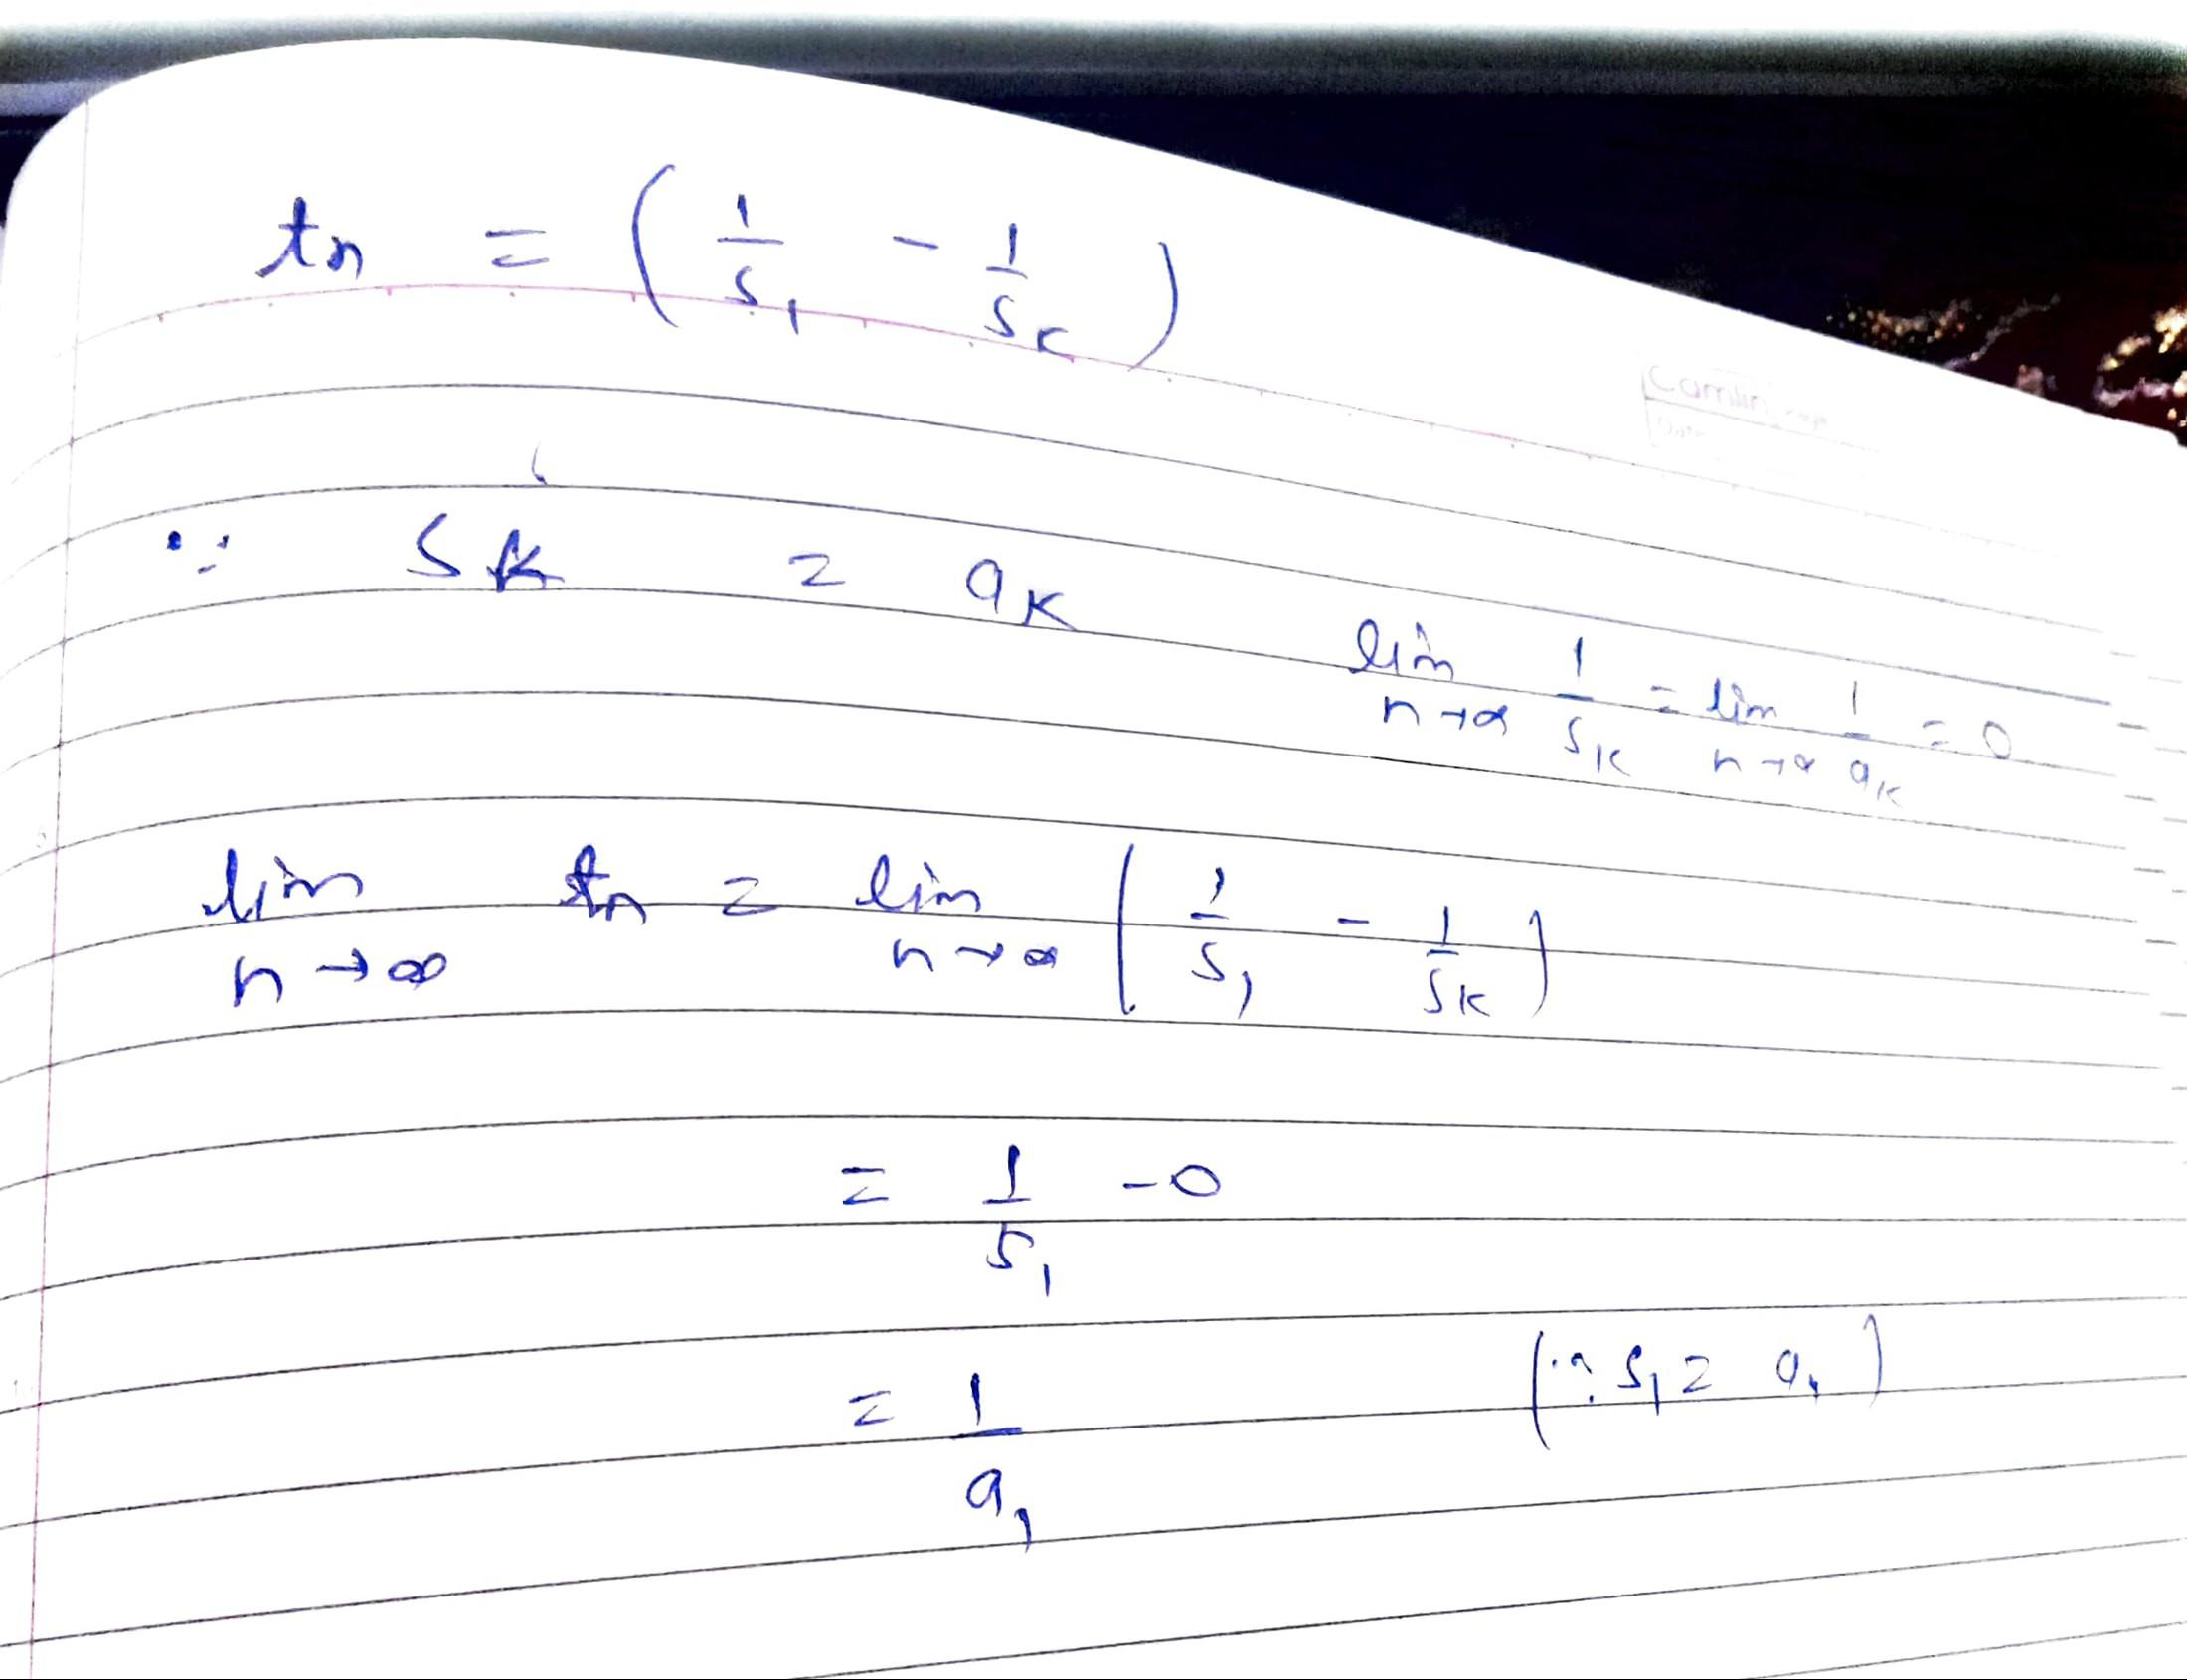 tn = ( 1/S₁ - 1/Sκ )
Camlin Page
Date
∵ Sκ = aκ
lim n→∞ 1/Sκ = lim n→∞ 1/aκ = 0
lim n→∞ tn = lim n→∞ ( 1/S₁ - 1/Sκ )
= 1/S₁ - 0
= 1/a₁ (∵ S₁ = a₁)